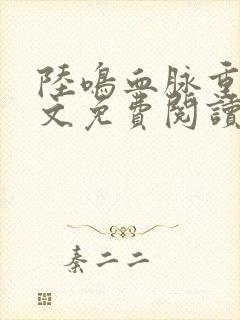 陸鳴血脉重
文免費閱讀
秦二二